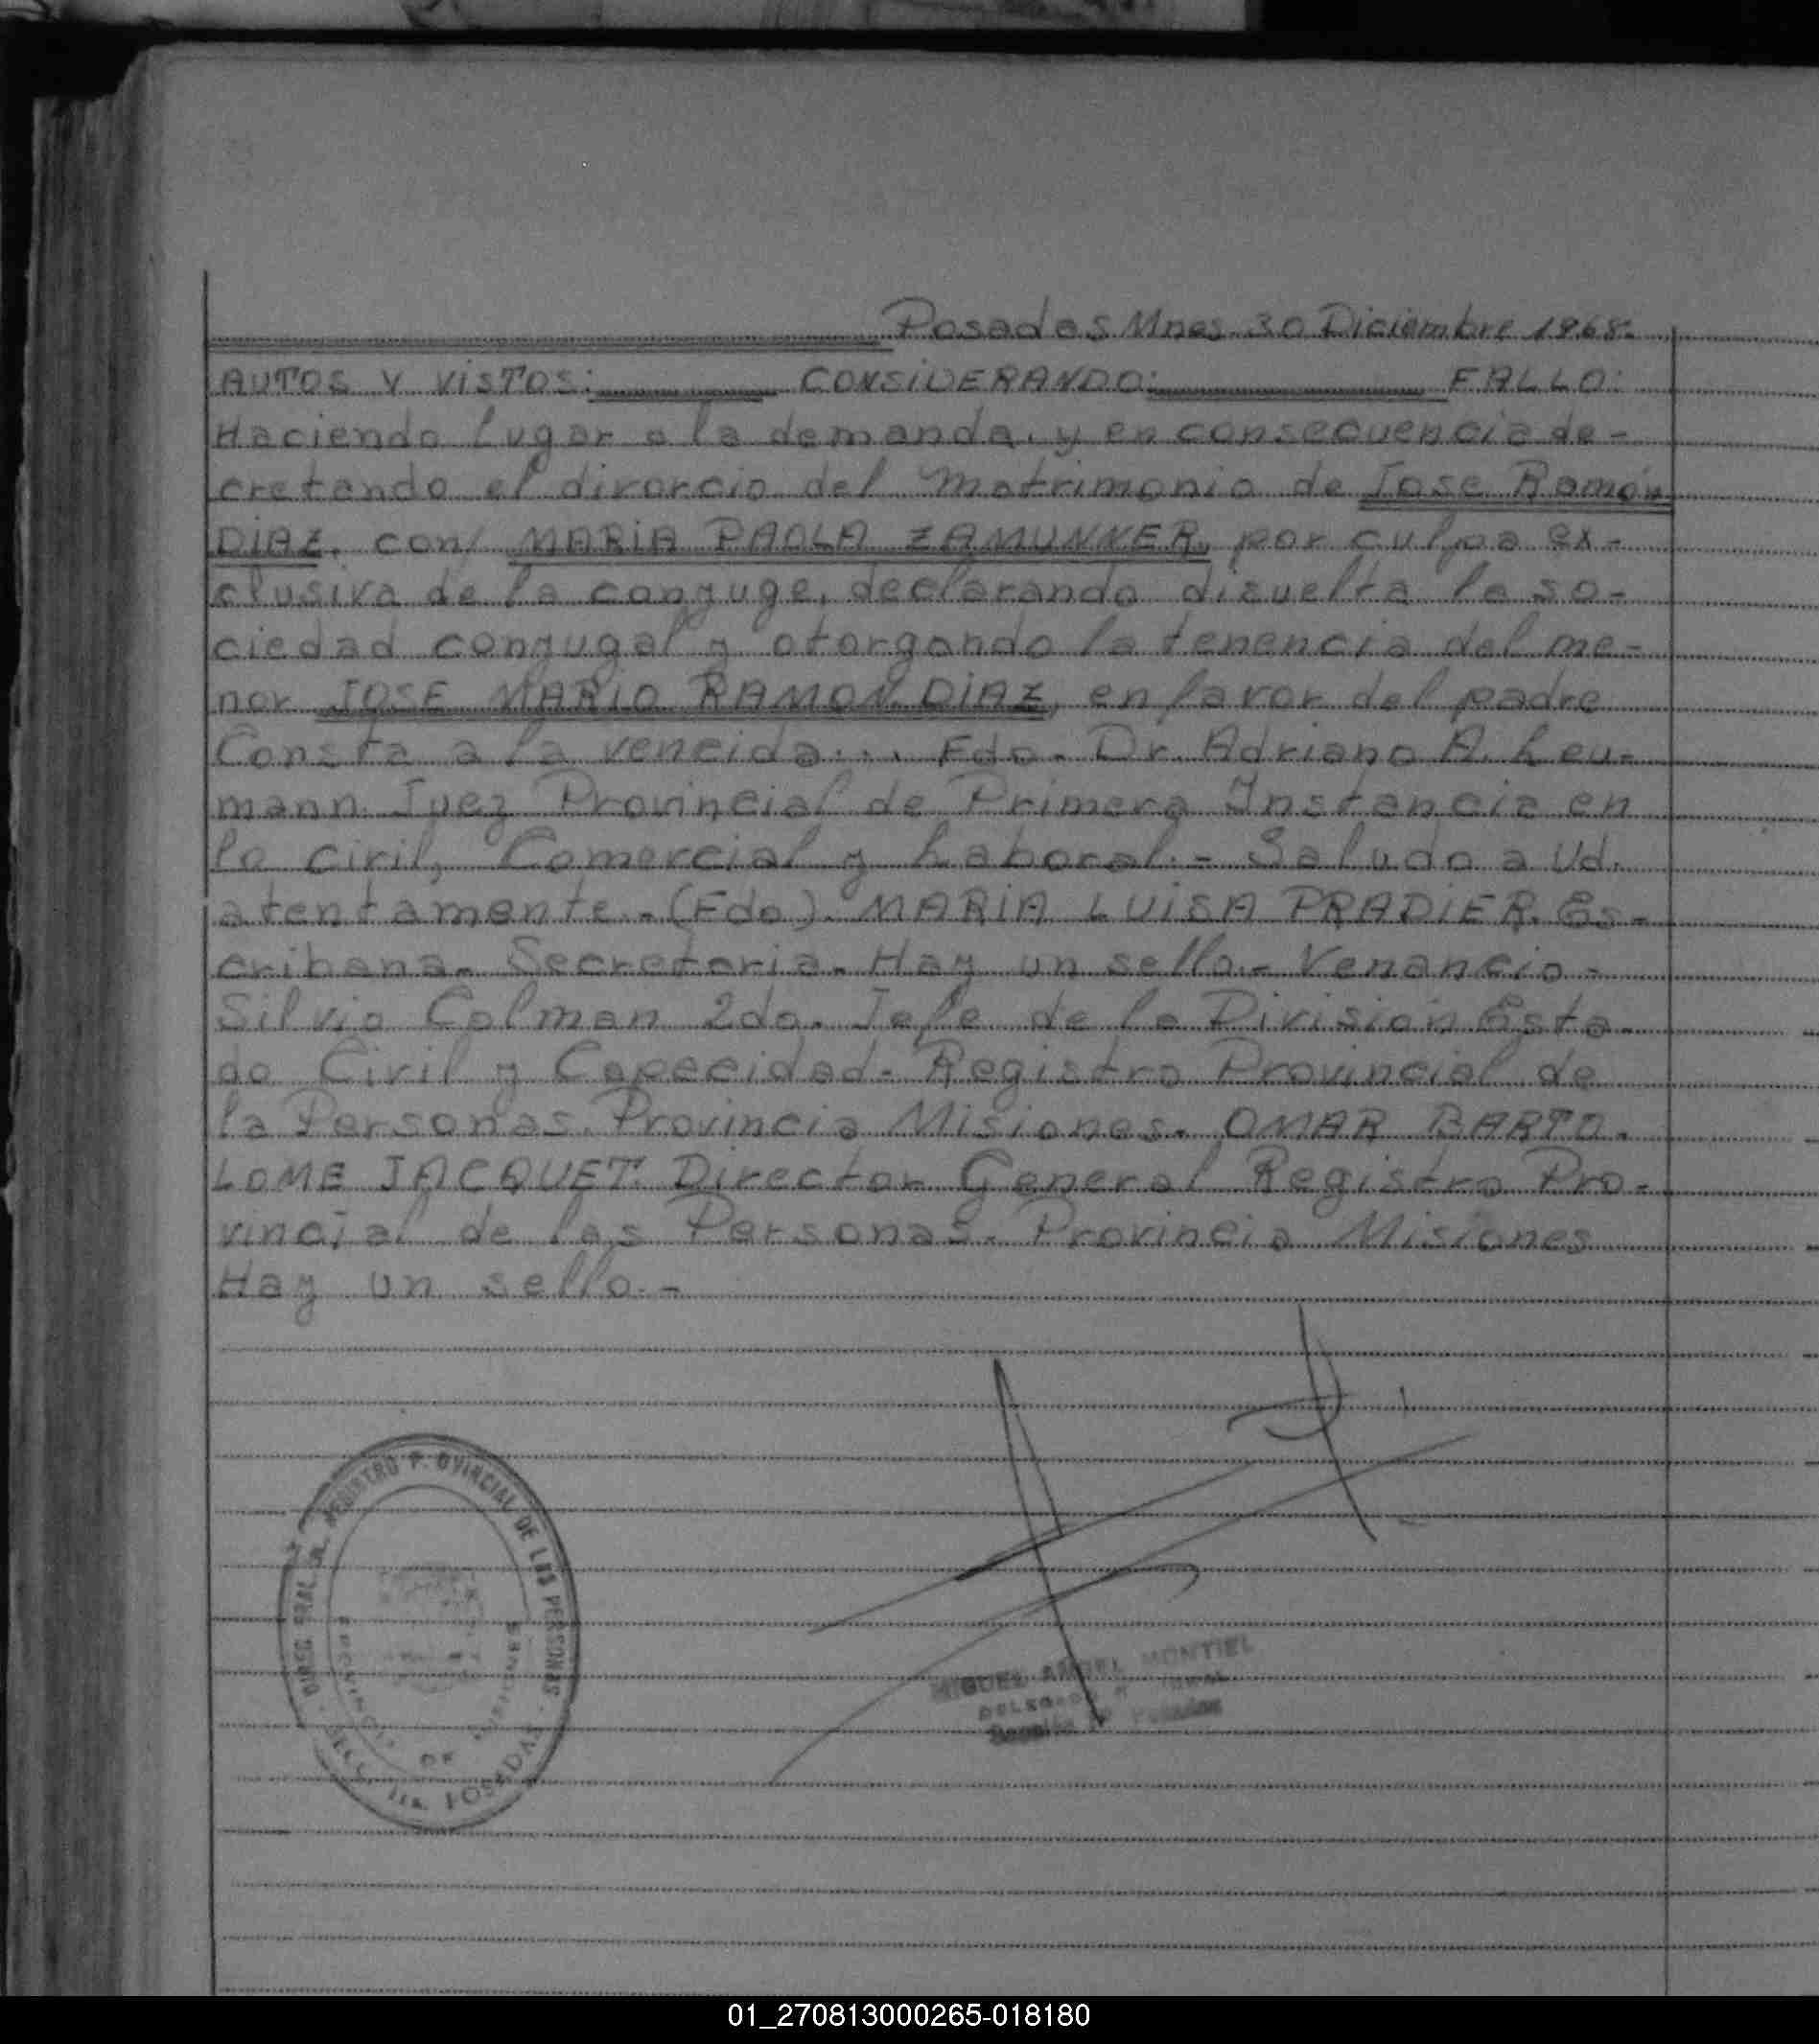 Posadas Mnes. 30 Diciembre 1968.
AUTOS Y VISTOS: CONSIDERANDO: FALLO:
Haciendo lugar a la demanda, y en consecuencia de-
cretando el divorcio del matrimonio de Jose Ramón
DIAZ, con MARIA PAOLA ZAMUNNER, por culpa ex-
clusiva de la conyuge, declarando disuelta la so-
ciedad conyugal y otorgando la tenencia del me-
nor JOSE MARIO RAMON DIAZ, en favor del padre
Consta a la vencida... Fdo. Dr. Adriano A. Leu-
mann. Juez Provincial de Primera Instancia en
lo civil, Comercial y Laboral. - Saludo a Ud.
atentamente. - (Fdo). MARIA LUISA PRADIER. Es-
cribana. Secretaria. Hay un sello. - Venancio -
Silvio Colman 2do. Jefe de la División Esta-
do Civil y Capacidad. Registro Provincial de
la Personas. Provincia Misiones. OMAR BARTO-
LOME JACQUET. Director General Registro Pro-
vincial de las Personas. Provincia Misiones
Hay un sello. -
REGISTRO P. OVINCIAL DE LAS PERSONAS
DE
POSADAS
MIGUEL ANGEL MONTIEL
01_270813000265-018180